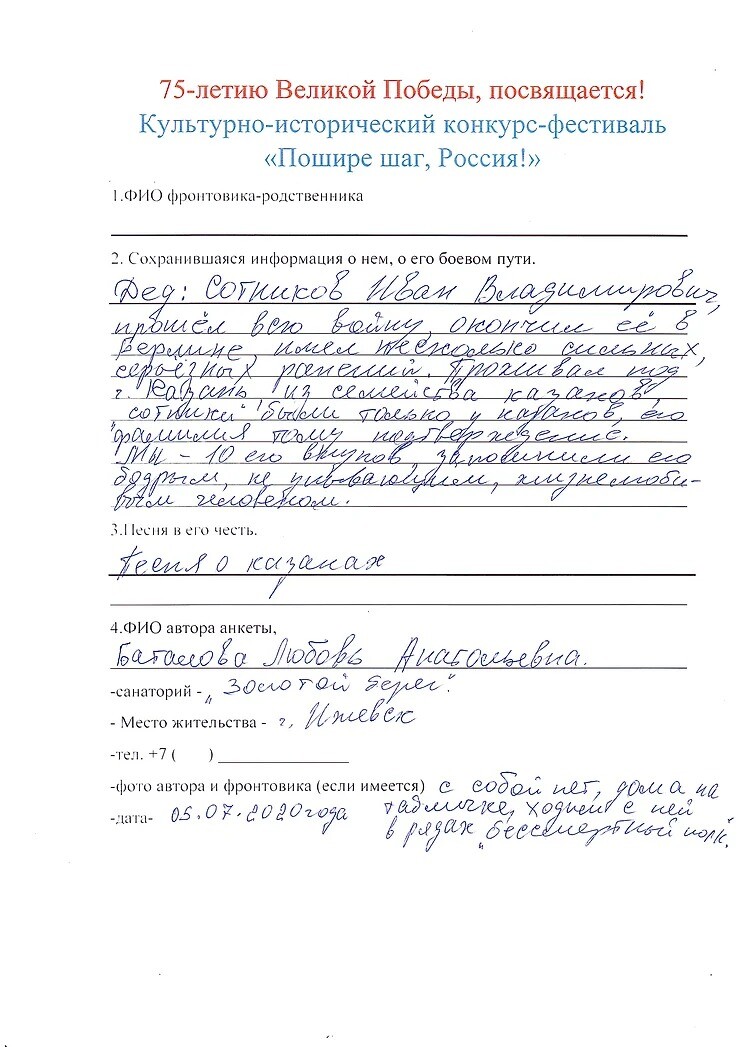 75-летию Великой Победы, посвящается!
Культурно-исторический конкурс-фестиваль
«Пошире шаг, Россия!»
1.ФИО фронтовика-родственника
2. Сохранившаяся информация о нем, о его боевом пути.
Дед: Сотников Иван Владимирович,
прошёл всю войну, окончил её в
Берлине, имел несколько сильных,
серьёзных ранений. Проживал под
г. Казань, из семейства казаков,
"сотники" были только у казаков, его
фамилия тому подтверждение.
Мы - 10 его внуков, запомнили его
бодрым, не унывающим, жизнелюби-
вым человеком.
3.Песня в его честь.
Песня о казаках
4.ФИО автора анкеты,
Баталова Любовь Анатольевна.
-санаторий - „Золотой берег".
- Место жительства - г. Ижевск
-тел. +7 ( ) 
-фото автора и фронтовика (если имеется) с собой нет, дома на
-дата- 05.07.2020года табличке, ходим с ней
в рядах „Бессмертный полк"